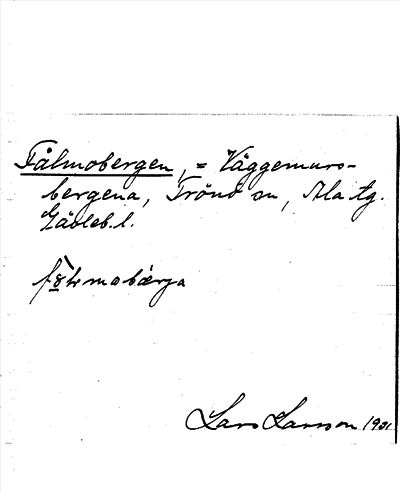 Fålmobergen, = Väggemurs-
bergena, Trönö sn, Ala tg.
Gävleb. l.
Lars Larsson 1901